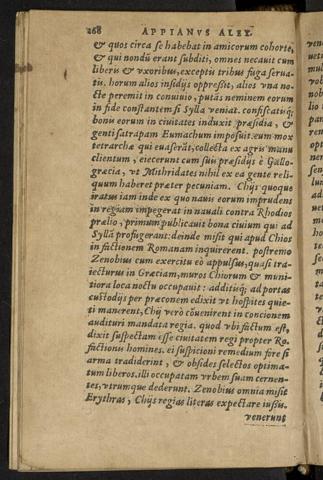 268 APPIANVS ALEX.
& quos circa se habebat in amicorum cohorte,
& qui nondũ erant subditi, omnes necauit cum
liberis & vxoribus, exceptis tribus fuga serua-
tis. horum alios insidijs oppressit, alios vna no-
cte peremit in conuiuio, putãs neminem eorum
in fide constantem si Sylla veniat. confiscatiq́;
bonis eorum in ciuitates induxit præsidia, &
genti satrapam Eumachum imposuit. eum mox
tetrarchæ qui euaserãt, collecta ex agris manu
clientum, eiecerunt cum suis præsidijs è Gallo-
græcia, vt Mithridates nihil ex ea gente reli-
quum haberet præter pecuniam. Chijs quoque
iratus iam inde ex quo nauis eorum imprudens
in regiam impegerat in nauali contra Rhodios
prælio, primum publicauit bona ciuium qui ad
Syllã profugerant: deinde misit qui apud Chios
in factionem Romanam inquirerent. postremo
Zenobius cum exercitu eò appulsus, quasi tra-
iecturus in Græciam, muros Chiorum & muni-
tiora loca noctu occupauit: additisq́; ad portas
custodijs per præconem edixit vt hospites quie-
ti manerent, Chij verò cõuenirent in concionem
audituri mandata regia. quod vbi factum est,
dixit suspectam esse ciuitatem regi propter Ro.
factionis homines. ei suspicioni remedium fore si
arma tradiderint, & obsides selectos optima-
tum liberos. illi occupatam vrbem suam cernen-
tes, vtrumque dederunt. Zenobius omnia misit
Erythras, Chijs regias literas expectare iussis.
venerunt